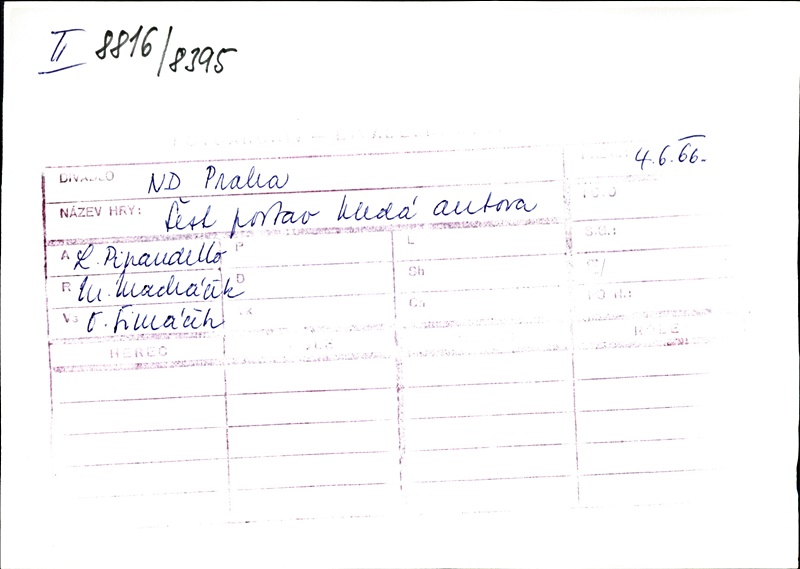 II 8816/8395
4.6.66.
DIVADLO ND Praha
NÁZEV HRY: Šest postav hledá autora
A L. Pirandello P L S.G.:
R M. Macháček D Sh
VS O. Šimáček K Ca
HEREC ROLE